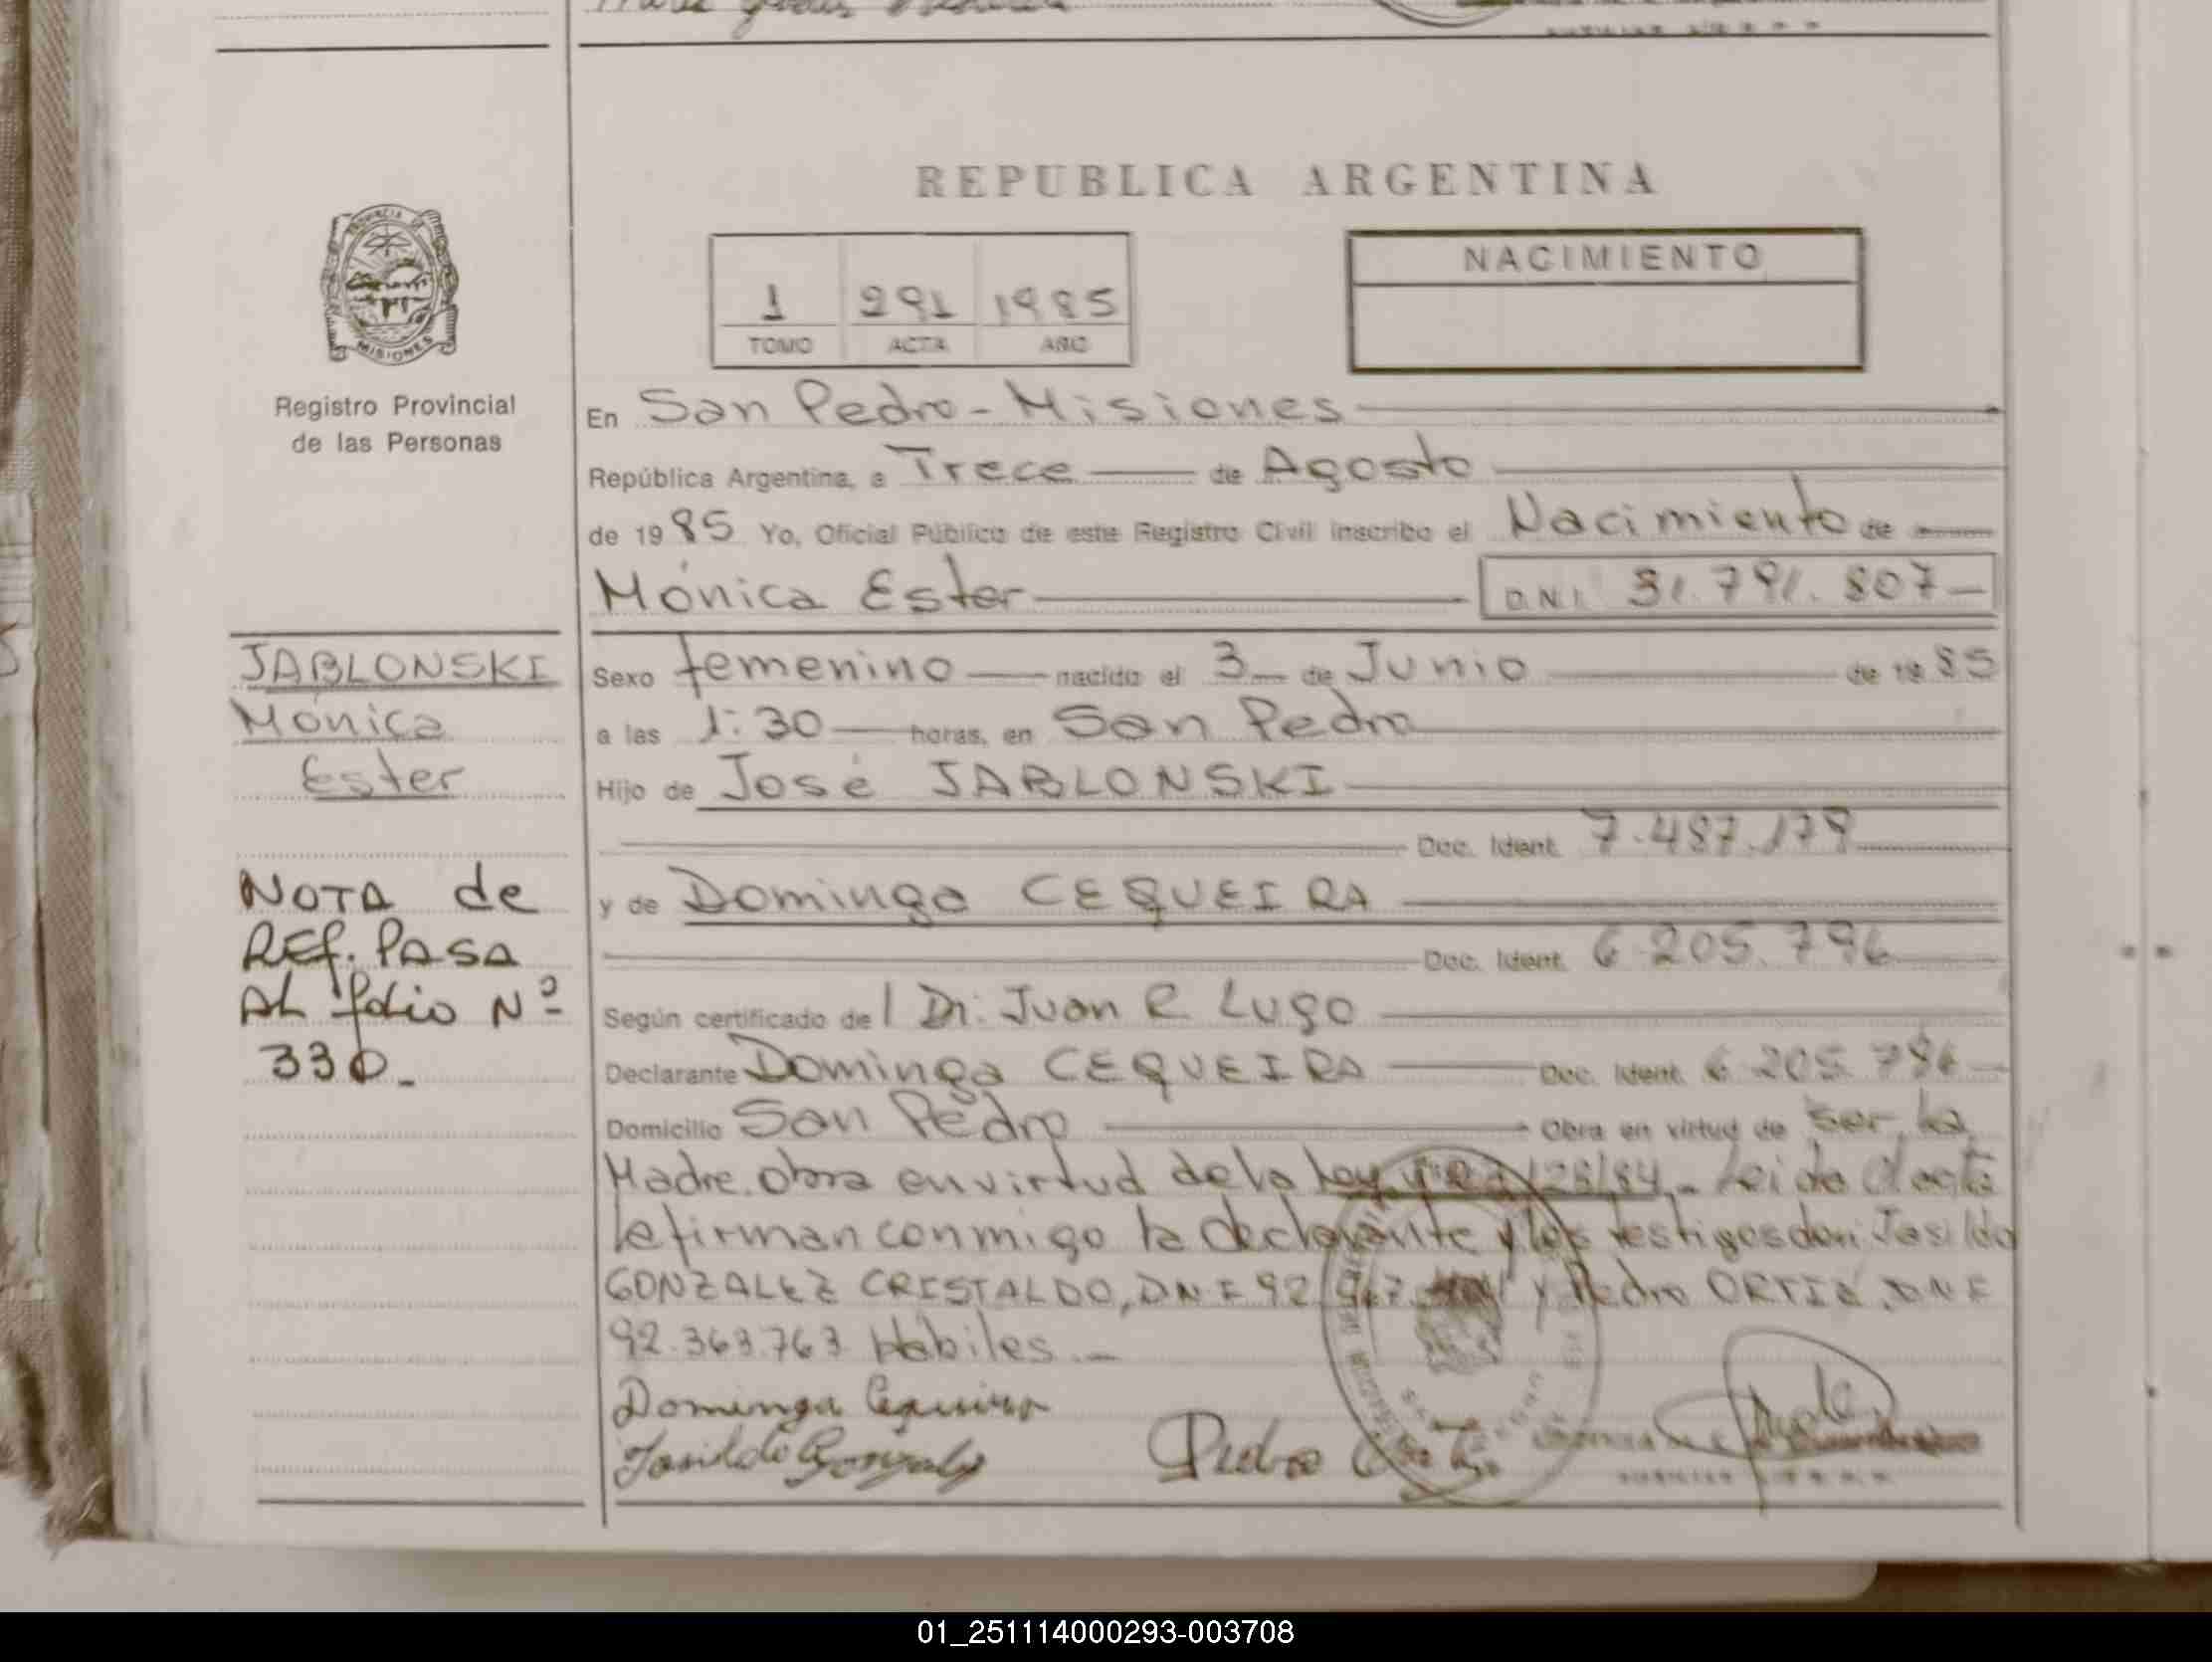 REPUBLICA ARGENTINA
PROVINCIA DE
MISIONES
Registro Provincial
de las Personas
1 291 1985
TOMO ACTA AÑO
NACIMIENTO
En San Pedro - Misiones
República Argentina, a Trece de Agosto
de 1985 Yo, Oficial Público de este Registro Civil inscribo el Nacimiento de
Mónica Ester D.N.I. 31.791.807
JABLONSKI
Mónica
Ester
NOTA de
REF. PASA
AL folio Nº
330
Sexo femenino nacido el 3 de Junio de 1985
a las 1:30 horas, en San Pedro
Hijo de José JABLONSKI
Doc. Ident. 7.487.178
y de Dominga CEQUEIRA
Doc. Ident. 6.205.796
Según certificado de l Dr. Juan R Lugo
Declarante Dominga CEQUEIRA Doc. Ident. 6.205.796
Domicilio San Pedro Obra en virtud de ser la
Madre. Obra en virtud de la Ley Leida el acta
la firman conmigo la declarante y los testigos don: Josildo
GONZALEZ CRISTALDO, DNI 92 y Pedro ORTIZ, DNI
92.363.763 Habiles. -
Dominga Cequeira
Josildo Gonzalez
Pedro
01_251114000293-003708